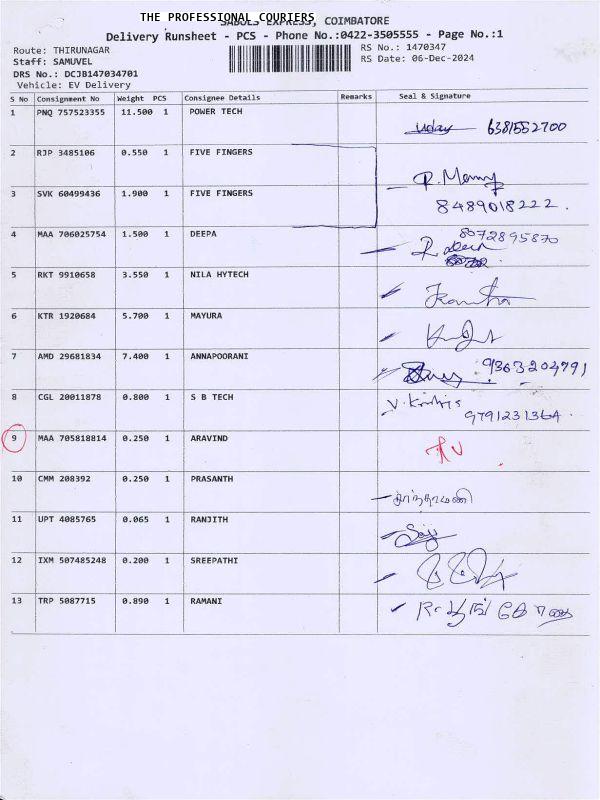 THE PROFESSIONAL COURIERS
EXPRESS, COIMBATORE
Delivery Runsheet - PCS - Phone No.:0422-3505555 - Page No.:1
Route: THIRUNAGAR RS No.: 1470347
Staff: SAMUVEL RS Date: 06-Dec-2024
DRS No.: DCJB147034701
Vehicle: EV Delivery
S No Consignment No Weight PCS Consignee Details Remarks Seal & Signature
1 PNQ 757523355 11.500 1 POWER TECH Uday 6381552700
2 RJP 3485106 0.550 1 FIVE FINGERS
3 SVK 60499436 1.900 1 FIVE FINGERS 8489018222.
4 MAA 706025754 1.500 1 DEEPA 8072895870
5 RKT 9910658 3.550 1 NILA HYTECH
6 KTR 1920684 5.700 1 MAYURA
7 AMD 29681834 7.400 1 ANNAPOORANI 9363204791
8 CGL 20011878 0.800 1 S B TECH 9791231364.
9 MAA 705818814 0.250 1 ARAVIND
10 CMM 208392 0.250 1 PRASANTH
11 UPT 4085765 0.065 1 RANJITH
12 IXM 507485248 0.200 1 SREEPATHI
13 TRP 5087715 0.890 1 RAMANI